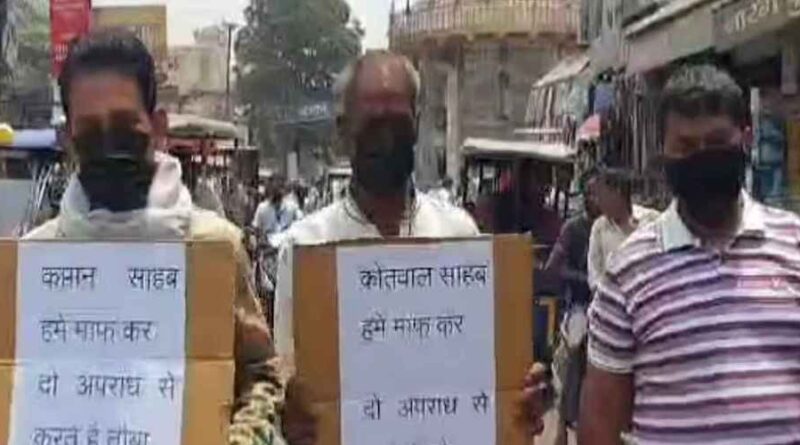 कप्तान साहब
हमे माफ कर
दो अपराध से
करते है तौबा
कोतवाल साहब
हमे माफ कर
दो अपराध से